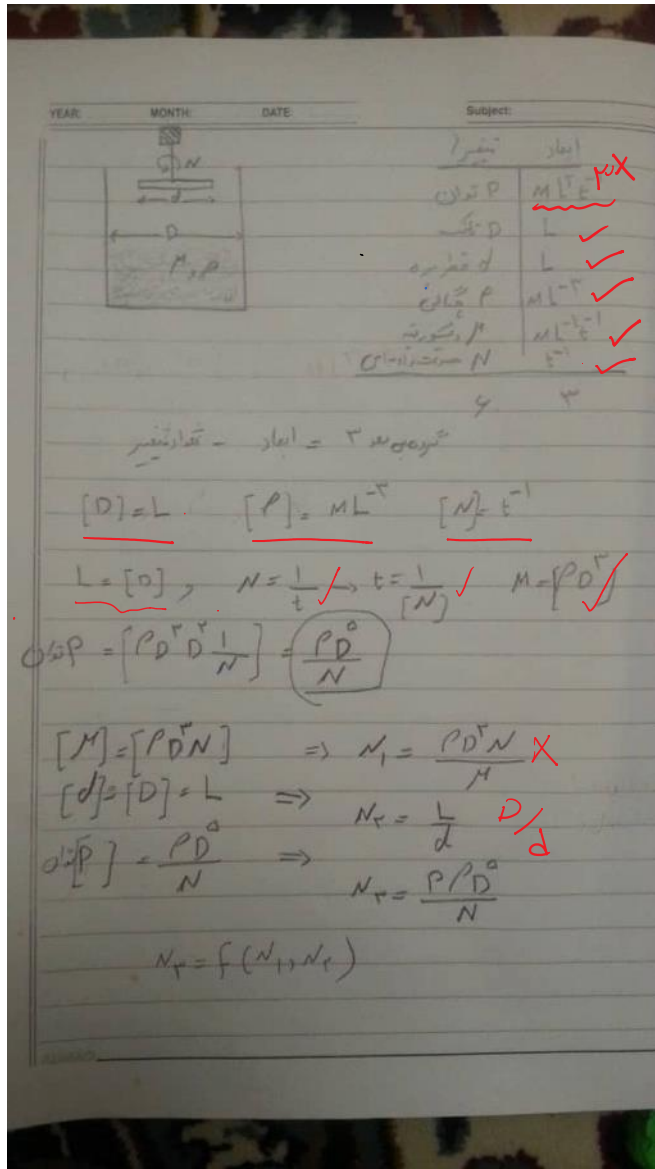 YEAR: MONTH: DATE: Subject:
N
d
D
μ, ρ
متغیرها ابعاد
P توان ML²t⁻ ۳ X
D تانک L ✓
d قطر پره L ✓
ρ چگالی ML⁻³ ✓
μ ویسکوزیته ML⁻¹t⁻¹ ✓
N t⁻¹ ✓
۶ ۳
گروه بی بعد ۳ = ابعاد - تعداد متغیر
[D]=L [ρ]=ML⁻³ [N]=t⁻¹
L=[D], N=1/t ✓ → t=1/[N] ✓ M=[ρD³] ✓
توان P=[ρD³D² 1/N]=ρD⁵/N
[μ]=[ρD²N] ⇒ N₁=ρD²N/μ X
[d]=[D]=L ⇒ N₂=L/d D/d
توان [P]=ρD⁵/N ⇒ N₃=PρD⁵/N
N₃=f(N₁, N₂)